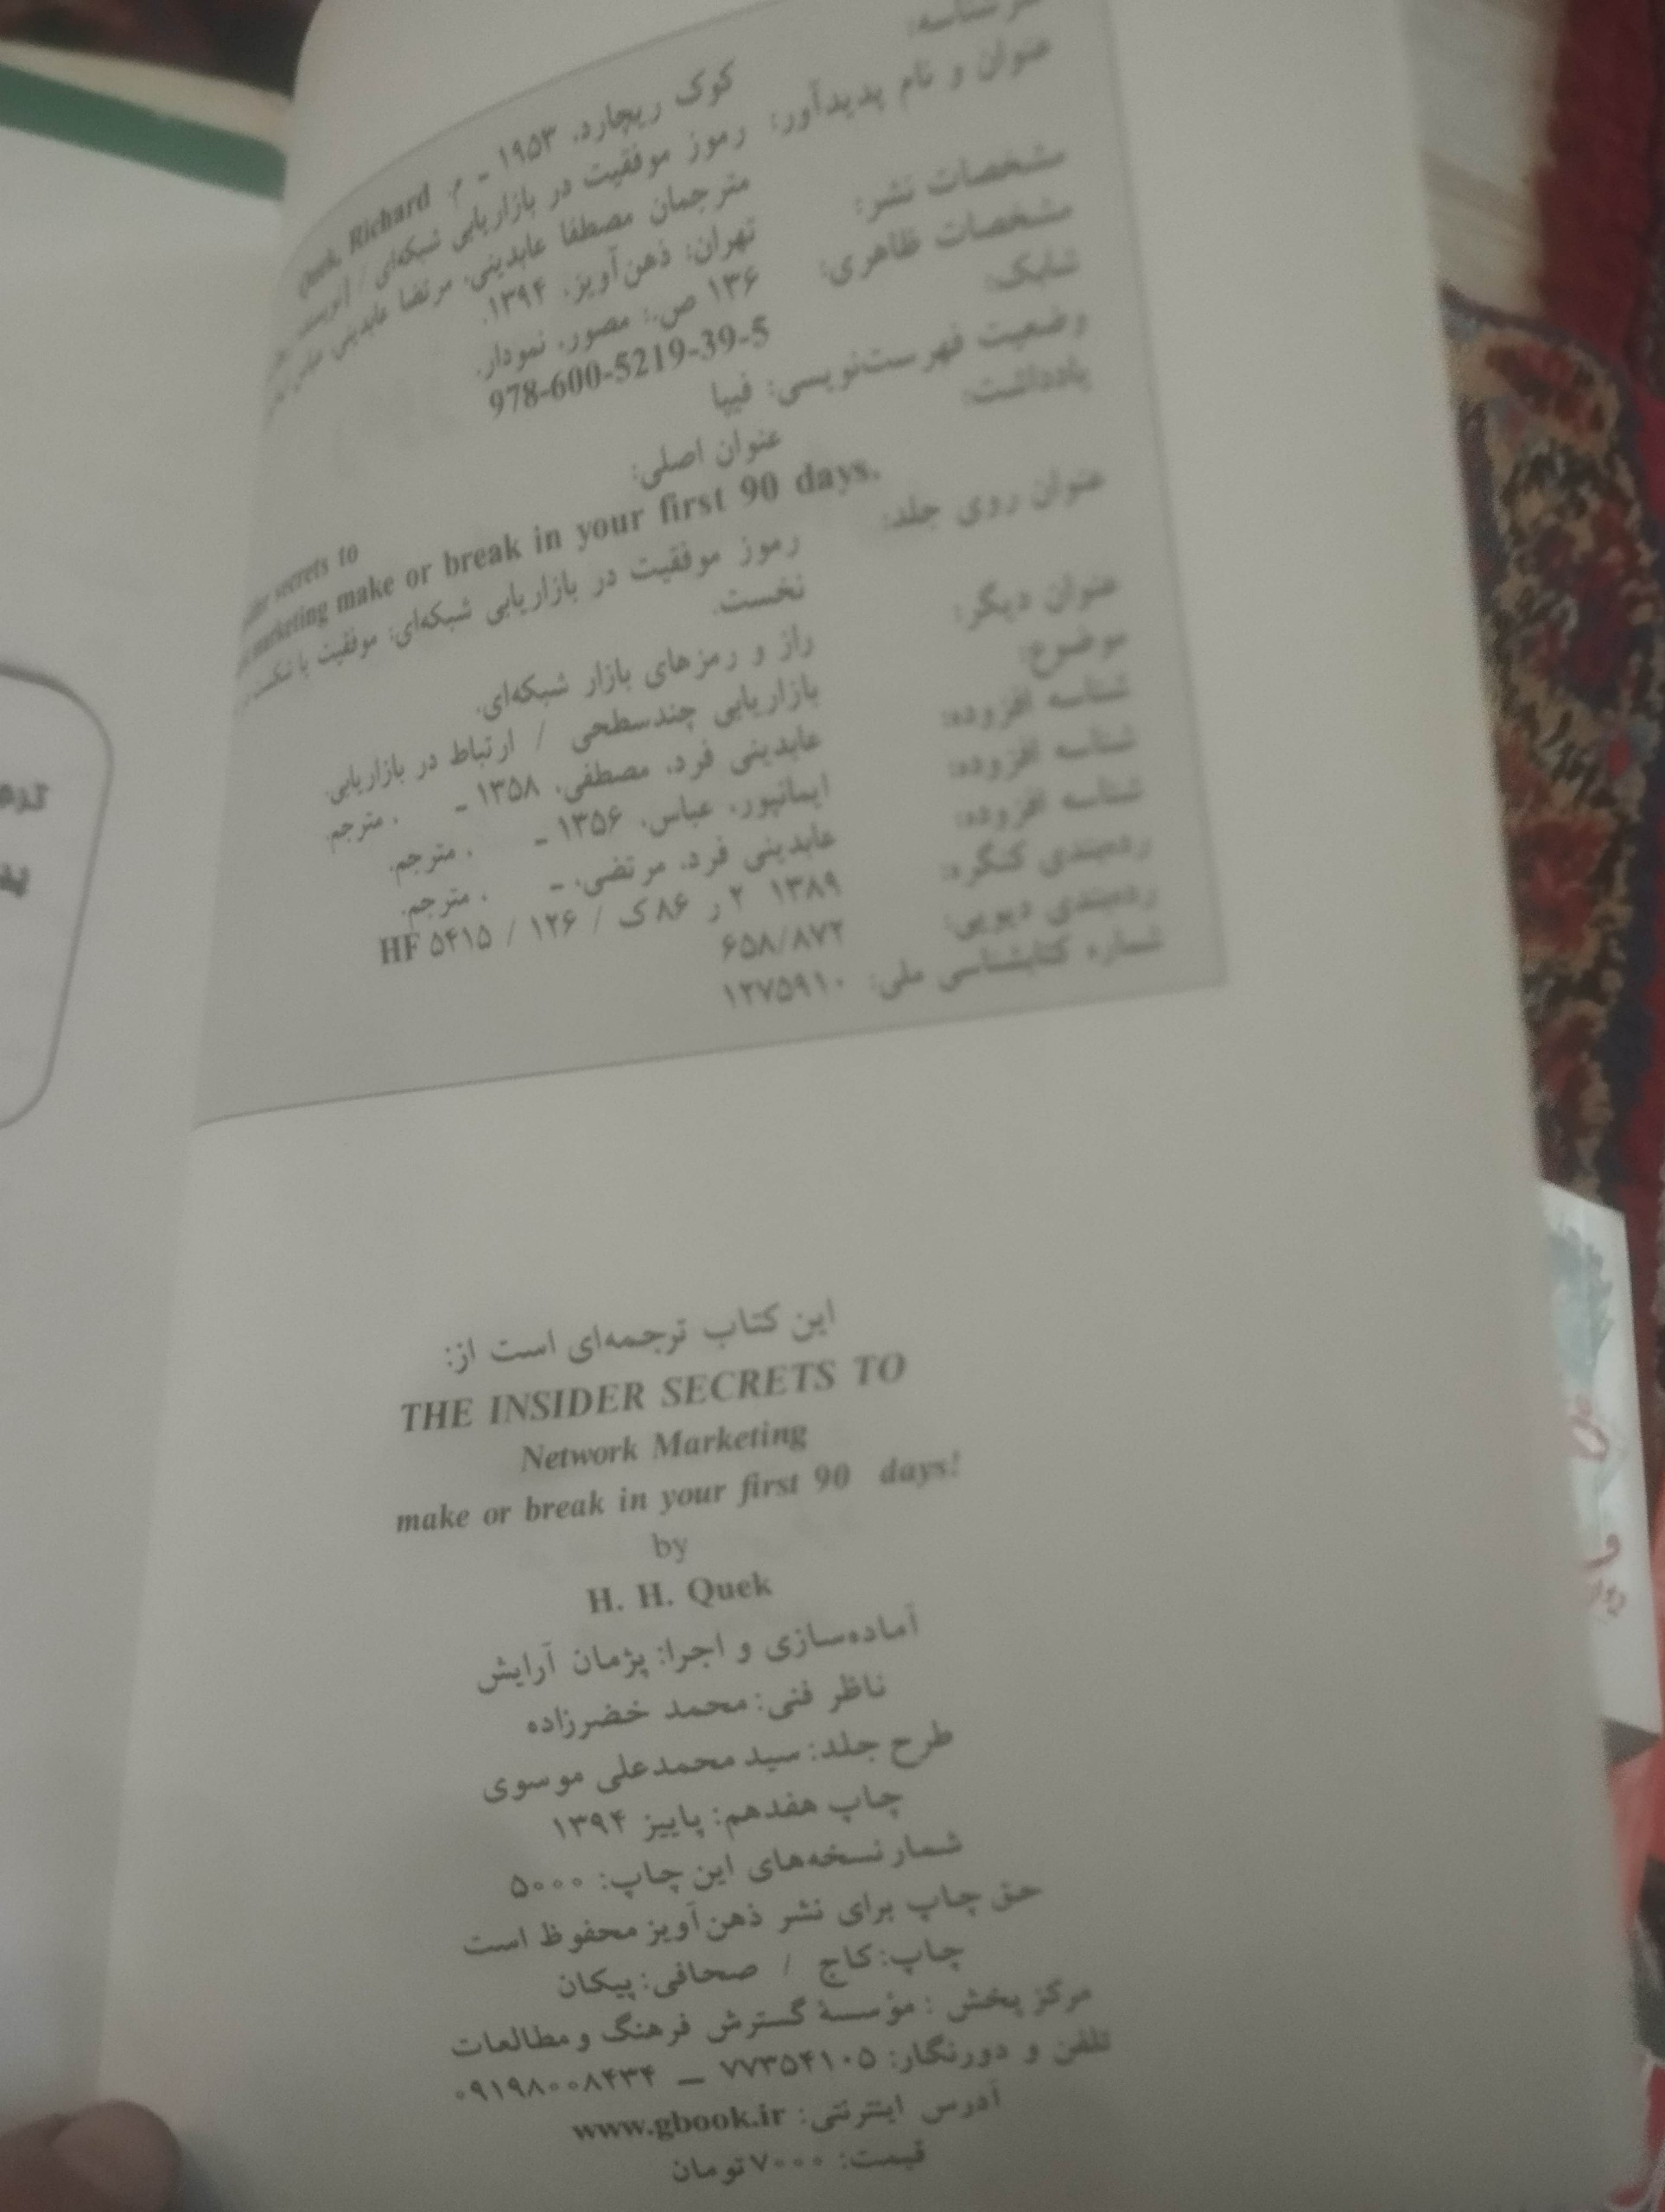 سرشناسه: کوک ریچارد، ۱۹۵۳ - م. Quek, Richard
عنوان و نام پدیدآور: رموز موفقیت در بازاریابی شبکه‌ای /
مترجمان مصطفا عابدینی، مرتضا عابدینی
مشخصات نشر: تهران: ذهن‌آویز، ۱۳۹۴.
مشخصات ظاهری: ۱۳۶ ص.: مصور، نمودار.
شابک: 978-600-5219-39-5
وضعیت فهرست‌نویسی: فیپا
یادداشت: عنوان اصلی:
secrets to
marketing make or break in your first 90 days.
عنوان روی جلد: رموز موفقیت در بازاریابی شبکه‌ای: موفقیت یا شکست
نخست.
عنوان دیگر: راز و رمزهای بازار شبکه‌ای.
موضوع: بازاریابی چندسطحی / ارتباط در بازاریابی.
شناسه افزوده: عابدینی فرد، مصطفی، ۱۳۵۸ - ، مترجم.
شناسه افزوده: ایمانپور، عباس، ۱۳۵۶ - ، مترجم.
شناسه افزوده: عابدینی فرد، مرتضی، - ، مترجم.
رده‌بندی کنگره: ۱۳۸۹ ۲ ر ۸۶ ک / ۱۲۶ / HF ۵۴۱۵
رده‌بندی دیویی: ۶۵۸/۸۷۲
شماره کتابشناسی ملی: ۱۲۷۵۹۱۰
این کتاب ترجمه‌ای است از:
THE INSIDER SECRETS TO
Network Marketing
make or break in your first 90 days!
by
H. H. Quek
آماده‌سازی و اجرا: پژمان آرایش
ناظر فنی: محمد خضرزاده
طرح جلد: سید محمدعلی موسوی
چاپ هفدهم: پاییز ۱۳۹۴
شمار نسخه‌های این چاپ: ۵۰۰۰
حق چاپ برای نشر ذهن‌آویز محفوظ است
چاپ: کاج / صحافی: پیکان
مرکز پخش : مؤسسهٔ گسترش فرهنگ و مطالعات
تلفن و دورنگار: ۷۷۳۵۴۱۰۵ – ۰۹۱۹۸۰۰۸۴۳۴
آدرس اینترنتی: www.gbook.ir
قیمت: ۷۰۰۰ تومان